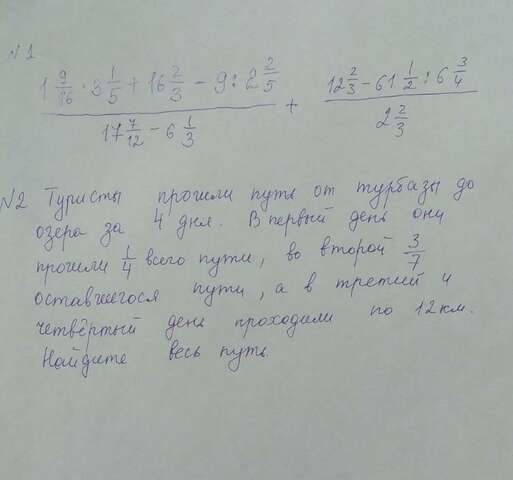 N1
(1 9/16 · 3 1/5 + 16 2/3 - 9 : 2 2/5) / (17 7/12 - 6 1/3) + (12 2/3 - 61 1/2 : 6 3/4) / (2 2/3)
N2 Туристы прошли путь от турбазы до
озера за 4 дня. В первый день они
прошли 1/4 всего пути, во второй 3/7
оставшегося пути, а в третий и
четвёртый день проходили по 12км.
Найдите весь путь.